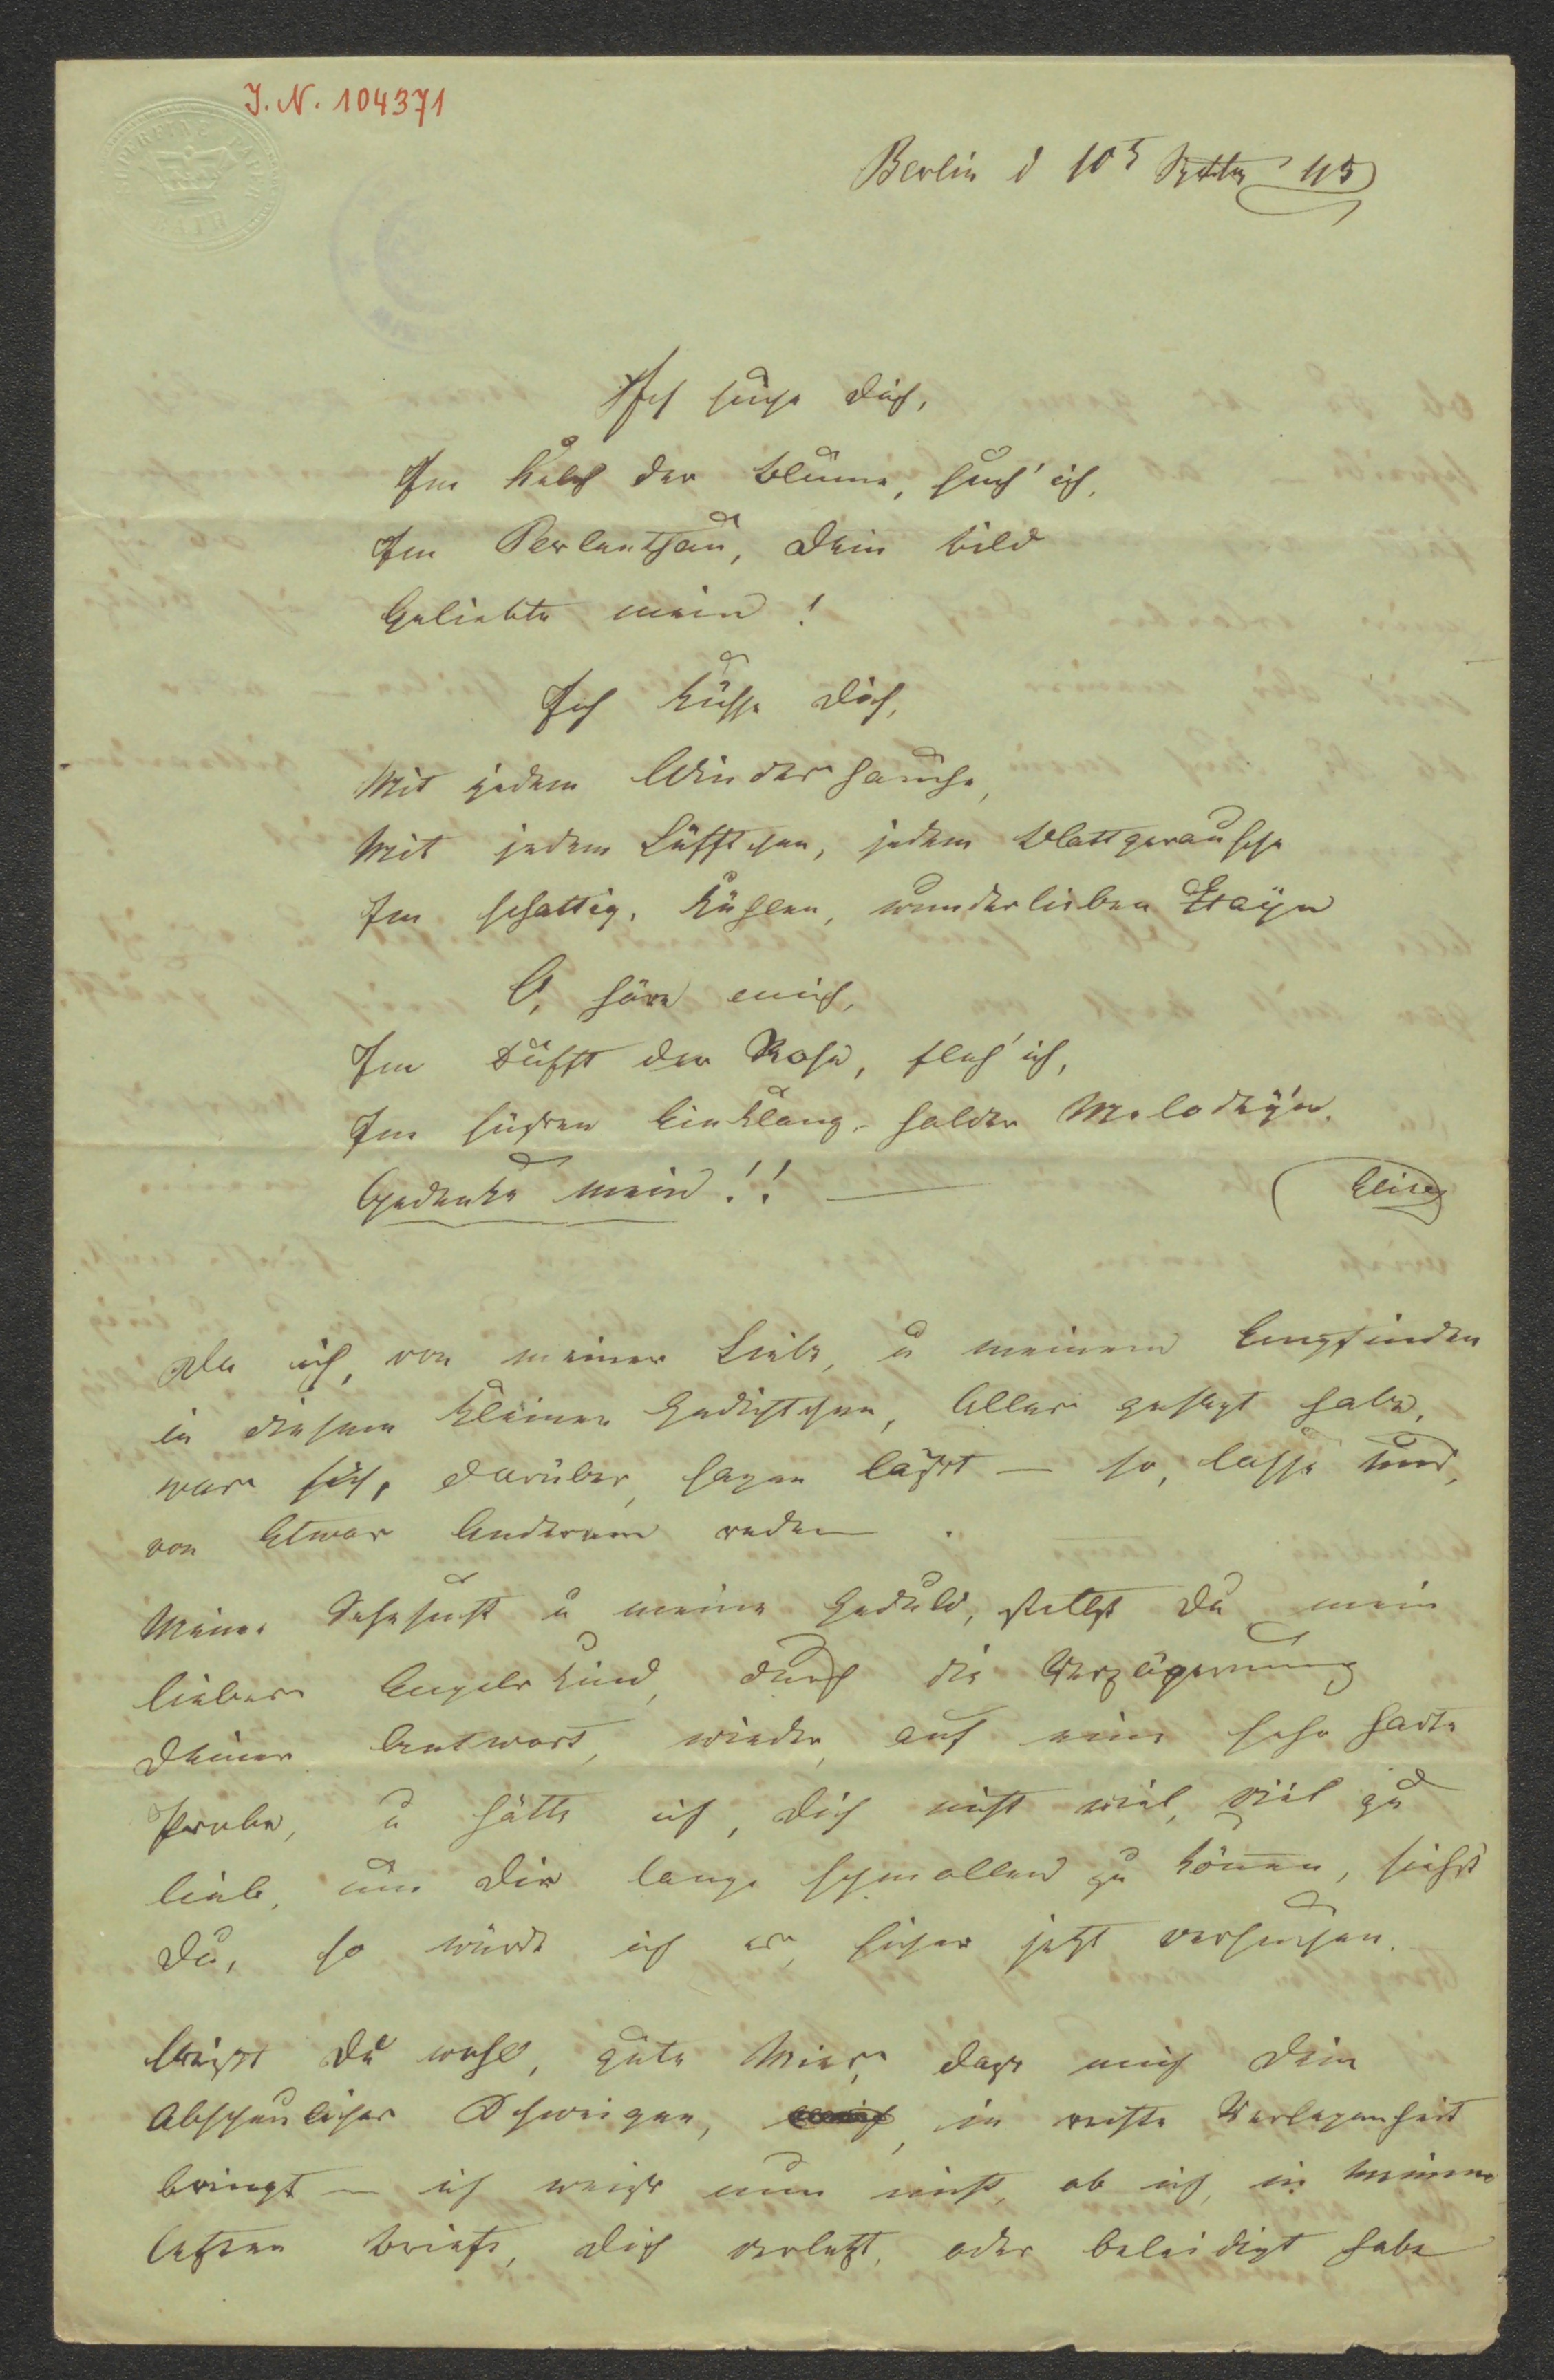 J. N. 104371
Berlin d 10t Septbr 45
Ich suche Dich,
Im Kelch der Blume, such' ich,
Im Perlenthau, Dein Bild
Geliebte mein!
Ich küsse Dich,
Mit jedem Windeshauche,
Mit jedem Lüfftchen, jedem Blattgerausche
Im schattig, kühlen, wunderlieben Hayn
O, höre mich,
Im Dufft der Rose, fleh' ich,
Im süssen Einklang, holder Melodey'n,
Gedenke mein!! —
Elise
Da ich, von meiner Liebe, u meinem Empfinden
in diesem kleinen Gedichtchen, Alles gesagt habe,
was sich, darüber, sagen lässt — so, lasse uns,
von Etwas Anderem reden.
Meine Sehnsucht u meine Geduld, stellst Du mein
liebes Engelskind, durch die Verzögerung
Deiner Antwort, wieder, auf eine sehr harte
Probe, u hätte ich, Dich nicht viel, viel zu
lieb, um Dir lange schmollen zu können, siehst
Du, so würde ich es, sicher jetzt versuchen.
Weisst Du wohl, gute Mies, dass mich Dein
abscheuliches Schweigen, in rechte Verlegenheit
bringt — ich weiss nun nicht, ob ich, in meinem
letzten Briefe, Dich verletzt, oder beleidigt habe